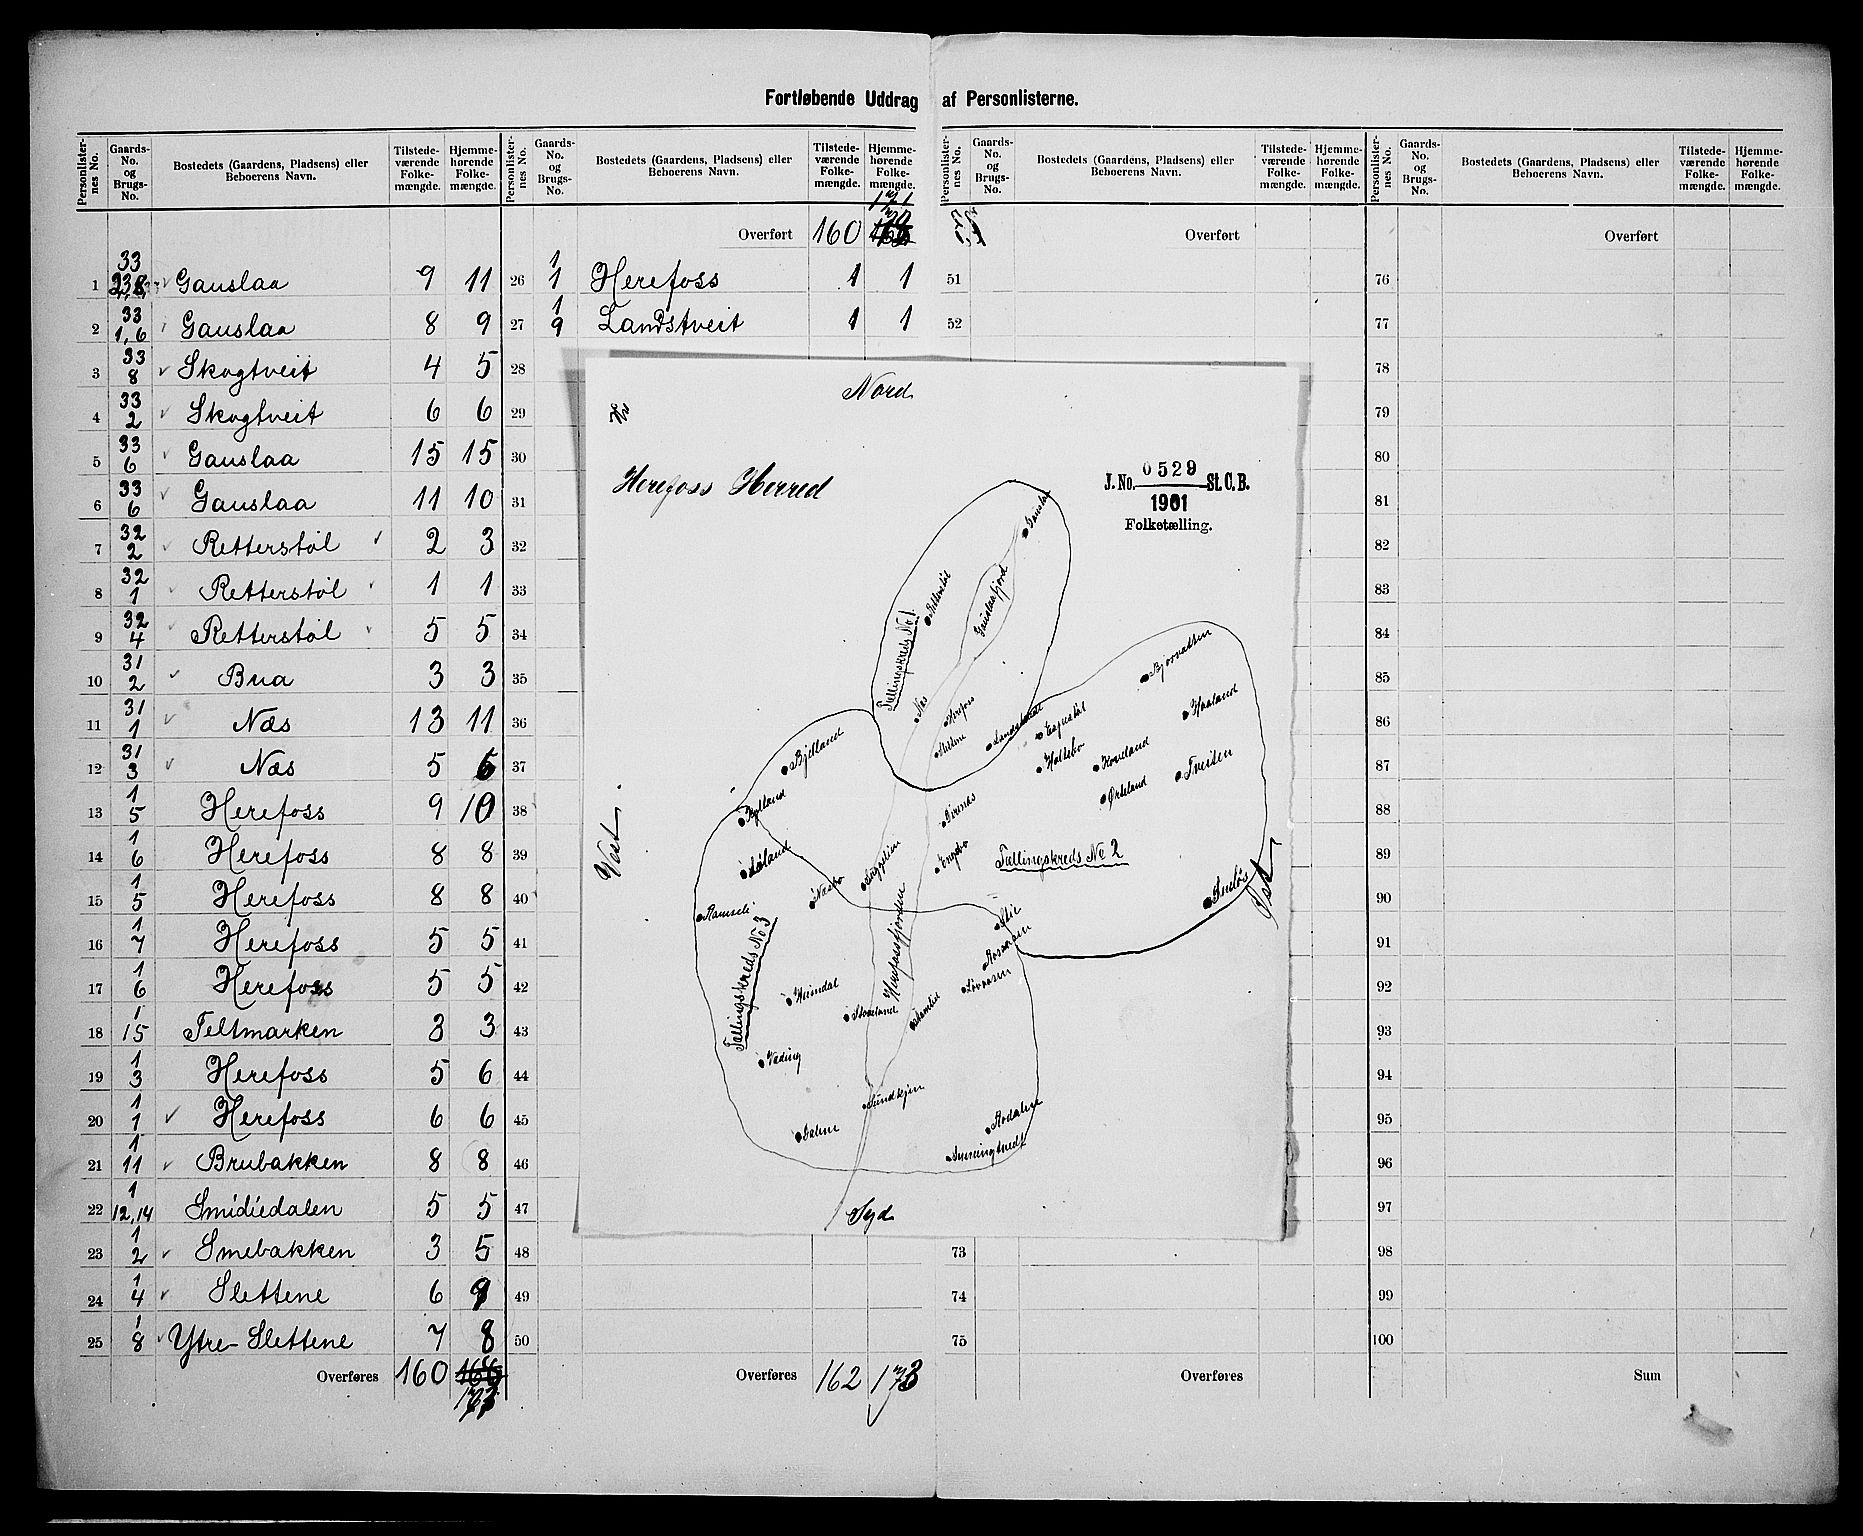 Fortløbende Uddrag af Personlisterne.
Personlister-nes No. | Gaards-No. og Brugs-No. | Bostedets (Gaardens, Pladsens) eller Beboerens Navn. | Tilstede-værende Folke-mængde. | Hjemme-hørende Folke-mængde.
1 33 Gauslaa 9 11
2 33 1,6 Gauslaa 8 9
3 33 8 Skogtveit 4 5
4 33 2 Skogtveit 6 6
5 33 6 Gauslaa 15 15
6 33 6 Gauslaa 11 10
7 32 2 Retterstøl 2 3
8 32 1 Retterstøl 1 1
9 32 4 Retterstøl 5 5
10 31 2 Bua 3 3
11 31 1 Næs 13 11
12 31 3 Næs 5 6
13 1 5 Herefoss 9 10
14 1 6 Herefoss 8 8
15 1 5 Herefoss 8 8
16 1 7 Herefoss 5 5
17 1 6 Herefoss 5 5
18 1 15 Teltmarken 3 3
19 1 3 Herefoss 5 6
20 1 1 Herefoss 6 6
21 1 11 Brubakken 8 8
22 1 12,14 Smidiedalen 5 5
23 1 2 Smebakken 3 5
24 1 4 Slettene 6
25 1 8 Ytre-Slettene 7 8
Overføres 160
Personlister-nes No. | Gaards-No. og Brugs-No. | Bostedets (Gaardens, Pladsens) eller Beboerens Navn. | Tilstede-værende Folke-mængde. | Hjemme-hørende Folke-mængde.
Overført 160 171
26 1 1 Herefoss 1 1
27 1 9 Landstveit 1 1
28
29
30
31
32
33
34
35
36
37
38
39
40
41
42
43
44
45
46
47
48
49
50
Overføres 162 173
Nord
Herefoss Herred
J. No. 0529 St. C. B.
1901
Folketælling.
Gauslaa
Retterstöl
Gauslaafjord
Tællingskreds No 1
Næs
Herefoss
Slettene
Bjorvatten
Haaland
Espestöl
Holtebo
Koveland
Tveiten
Ørteland
Bjelland
Kylland
Vest
Löland
Næsbo
Ramse
Engebo
Tællingskreds No 2
Öst
Herefossfjorden
Tællingskreds No 3
Stie
Lövaasen
Heimdal
Stoveland
Væding
Sundtjen
Dalene
Aodalen
Syd
Personlister-nes No. | Gaards-No. og Brugs-No. | Bostedets (Gaardens, Pladsens) eller Beboerens Navn. | Tilstede-værende Folke-mængde. | Hjemme-hørende Folke-mængde.
Overført
51
52
73
74
75
Overføres
Personlister-nes No. | Gaards-No. og Brugs-No. | Bostedets (Gaardens, Pladsens) eller Beboerens Navn. | Tilstede-værende Folke-mængde. | Hjemme-hørende Folke-mængde.
Overført
76
77
78
79
80
81
82
83
84
85
86
87
88
89
90
91
92
93
94
95
96
97
98
99
100
Sum